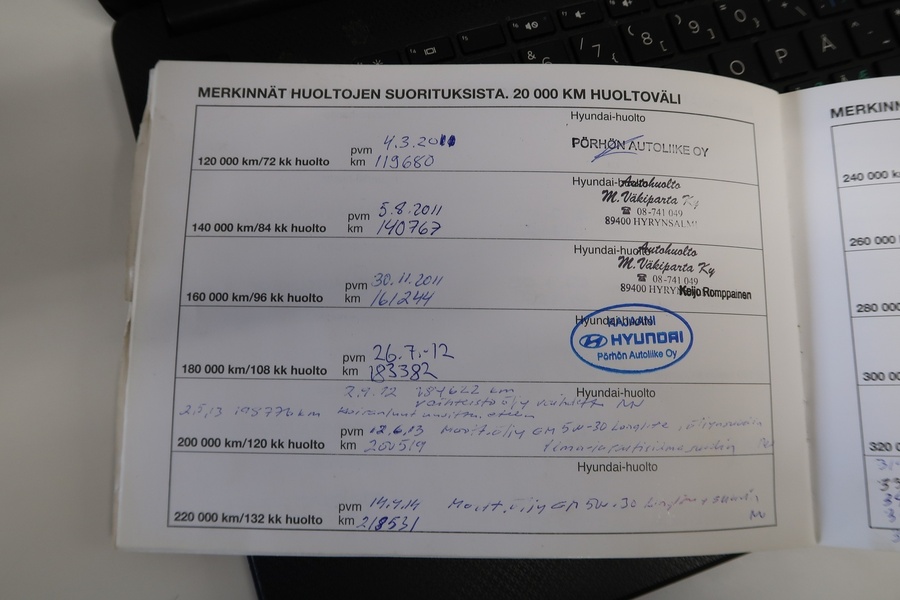 MERKINNÄT HUOLTOJEN SUORITUKSISTA. 20 000 KM HUOLTOVÄLI
Hyundai-huolto
120 000 km/72 kk huolto
pvm 4.3.2011
km 119680
PÖRHÖN AUTOLIIKE OY
Hyundai-
Autohuolto
M. Väkiparta Ky
☎ 08-741 049
89400 HYRYNSALMI
140 000 km/84 kk huolto
pvm 5.8.2011
km 140767
Hyundai-huolto
Autohuolto
M. Väkiparta Ky
☎ 08-741 049
89400 Keijo Romppainen
160 000 km/96 kk huolto
pvm 30.11.2011
km 161244
HYUNDAI
Pörhön Autoliike Oy
180 000 km/108 kk huolto
pvm 26.7.-12
km 183382
Hyundai-huolto
2.9.12 km
vaihteistoöljy
2.5.13 198776 km
200 000 km/120 kk huolto
pvm 12.6.13 Moott.öljy GM 5W-30 Longlife
km 200519
Hyundai-huolto
220 000 km/132 kk huolto
pvm 14.4.14 Moott.öljy GM 5W-30
km 218531
MERKINN
240 000 k
260 000
280 00
300 00
320 0